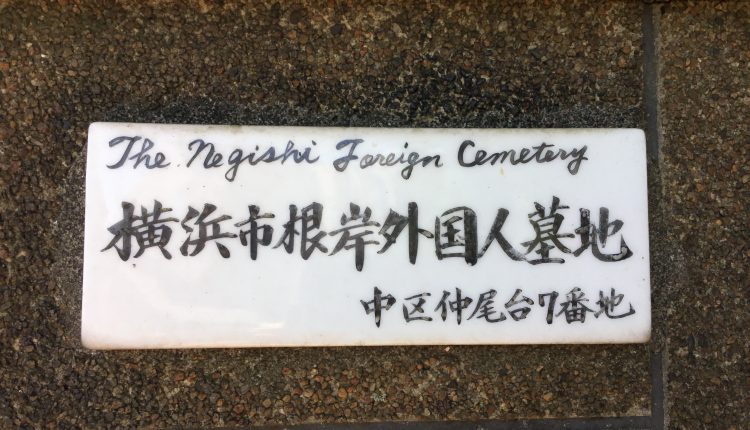 The Negishi Foreign Cemetery
横浜市根岸外国人墓地
中区仲尾台7番地